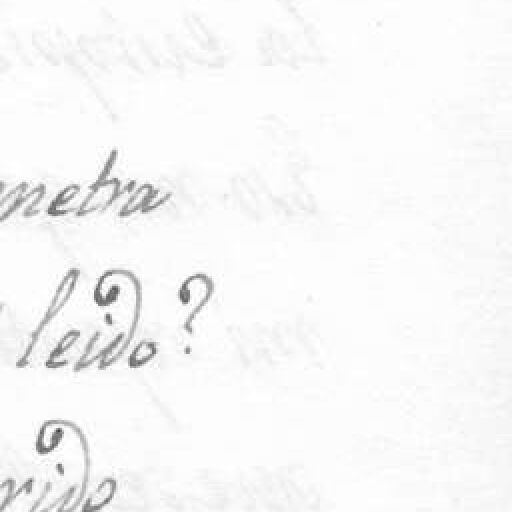 metra
leido?
rido